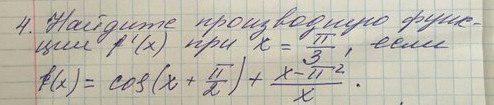 4. Найдите производную функ-
ции f'(x) при x = π/3, если
f(x) = cos(x + π/2) + (x - π²)/x.